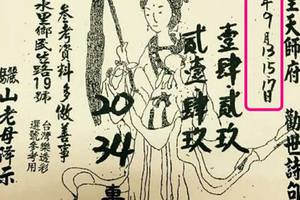 聖天師府
年9月13.15.17日
勸世詩句
壹肆貳玖
貳壹肆玖
20
34
車
參考資料多做善事
水里鄉民生路19號
台灣樂透彩
選號參考用
山老母降示